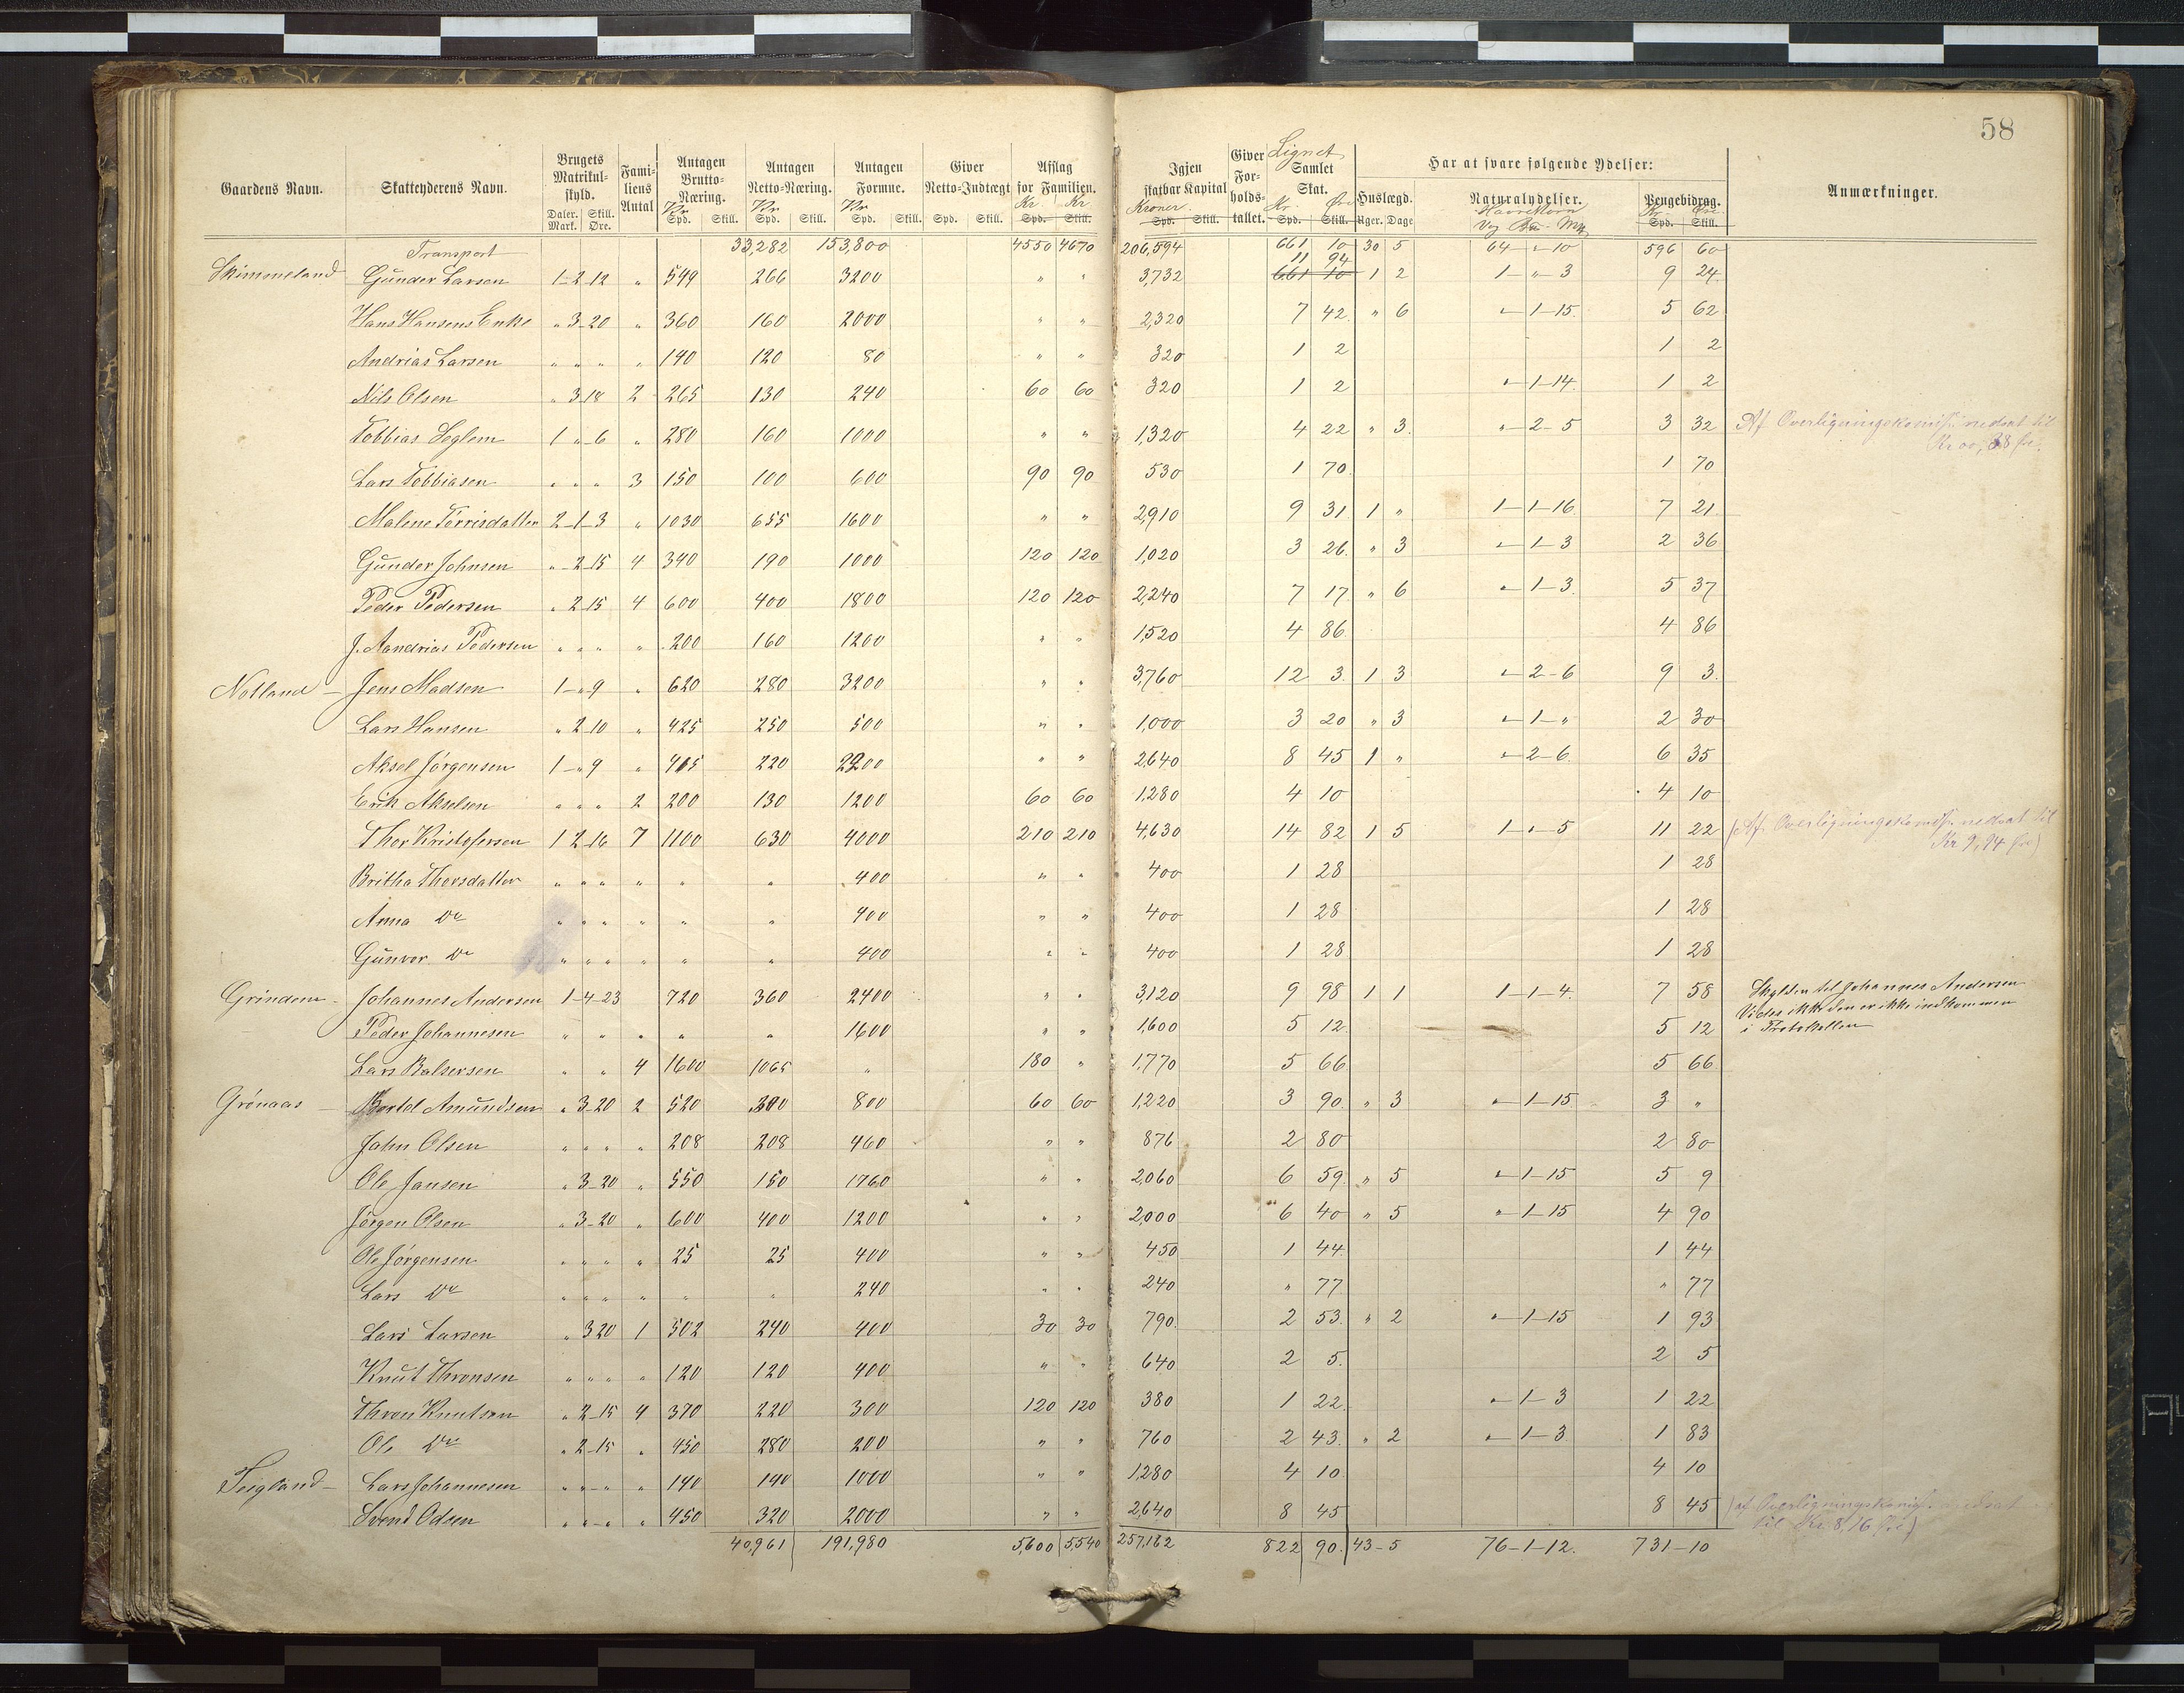 58
Gaardens Navn. Skatteyderens Navn. Brugets Matrikul-skyld. Daler. Mark. Skill. Øre. Fami-liens Antal Antagen Brutto-Næring. Kr Spd. Skill. Antagen Netto-Næring. Kr Spd. Skill. Antagen Formue. Kr Spd. Skill. Giver Netto-Indtægt Spd. Skill. Afslag for Familien. Kr. Kr Spd. Skill. Igjen skatbar Kapital Kroner Spd. Skill. Giver For-holds-tallet. Lignet Samlet Skat. Kr. Øre Spd. Skill. Har at svare følgende Ydelser: Huslægd. Uger. Dage Naturalydelser. Havrekorn Pengebidrag. Kr. Øre. Spd. Skill. Anmærkninger.
Transport 33,282 153,800 4550 4670 206,594 661 10 30 5 64 " 10 596 60
Skimmeland Gunder Larsen 1-2 12 " 549 266 3200 " " 3,732 11 94 661 10 1 2 1 - " - 3 9 24
Hans Hansens Enke " 3-20 " 360 160 2000 " " 2,320 7 42 " 6 " 1-15. 5 62
Andrias Larsen " " " " 140 120 80 " " 320 1 2 1 2
Nils Olsen " 3 18 2 265 130 240 60 60 320 1 2 " 1-14. 1 2
Tobbias Seglem 1 " 6 " 280 160 1000 " " 1,320 4 22 " 3. " 2-5 3 32 Af Overligningskomis. nedsat til
Lars Tobbiasen " " " 3 150 100 600 90 90 530 1 70 1 70
Malene Tørrisdatter 2-1-3 " 1030 655 1600 " " 2,910 9 31 1 " 1-1-16 7 21
Gunder Johnsen " 2-15 4 340 190 1000 120 120 1,020 3 26. " 3 " 1-3 2 36
Peder Pedersen " 2 15 4 600 400 1800 120 120 2,240 7 17 " 6 " 1-3 5 37
J. Aandrias Pedersen " " " " 200 160 1200 " " 1,520 4 86 4 86
Notland - Jens Madsen 1-"9 " 620 280 3200 " " 3,760 12 3. 1 3 " 2-6 9 3.
Lars Hansen " 2 10 " 425 250 500 " " 1,000 3 20 " 3 " 1-" 2 30
Aksel Jørgensen 1-"9 " 415 220 2200 " " 2,640 8 45 1 " " 2-6. 6 35
Erik Akselsen " " " 2 200 130 1200 60 60 1,280 4 10 4 10
Thor Kristofersen 1 2-16 7 1100 630 4000 210 210 4,630 14 82 1 5 1 " 5 11 22 (Af Overligningskomis. nedsat til
Kr 9,94 øre)
Britha Thorsdatter " " " " " " 400 " " 400 1 28 1 28
Anna Do " " " " " " 400 " " 400 1 28 1 28
Gunvor Do " " " " " " 400 " " 400 1 28 1 28
Grindem - Johannes Andersen 1-4-23 720 360 2400 " " 3,120 9 98 1 1 1-1-4. 7 58 Skylden til Johannes Andersen
Vides ikke den er ikke indkommen
i Protokollen
Peder Johannesen " " " " " 1600 " " 1,600 5 12 5 12
Lars Balsersen " " 4 1600 1065 " 180 " 1,770 5 66 5 66
Grönaas - Bertel Amundsen " 3-20 2 520 300 800 60 60 1,220 3 90. " 3 " 1-15 3 "
John Olsen " " " " 208 208 460 " " 876 2 80 2 80
Ole Jansen " 3-20 " 550 150 1760 " " 2,060 6 59. " 5 " 1-15 5 9
Jörgen Olsen " 3-20 " 600 400 1200 " " 2,000 6 40 " 5 " 1-15 4 90
Ole Jörgensen " " " " 25 25 400 " " 450 1 44 1 44
Lars Do " " " " " " 240 " " 240 " 77 " 77
Lars Larsen " 3 20 1 502 240 400 30 30 790. 2 53. " 2 " 1-15 1 93
Knut Thronsen " " " " 120 120 400 " " 640 2 5. 2 5
Thron Knutsen " 2-15 4 370 220 300 120 120 380 1 22 " 1-3 1 22
Ole Do " 2-15 " 450 280 200 " " 760 2 43. " 2 " 1-3 1 83
Lars Johannesen " " " " 140 140 1000 " " 1,280 4 10. 4 10
Svend Odsen " " " " 450 320 2000 " " 2,640 8 45 8 45 (af Overligningskomis. nedsat
til Kr 8,16 øre)
40,961 191,980 5,600 5,540 257,182 822 90. 43-5 76-1-12. 731-10